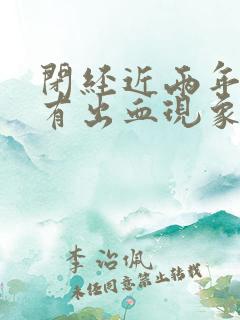 閉経近両年
有出血現象
李治佩
未任同意禁止转载